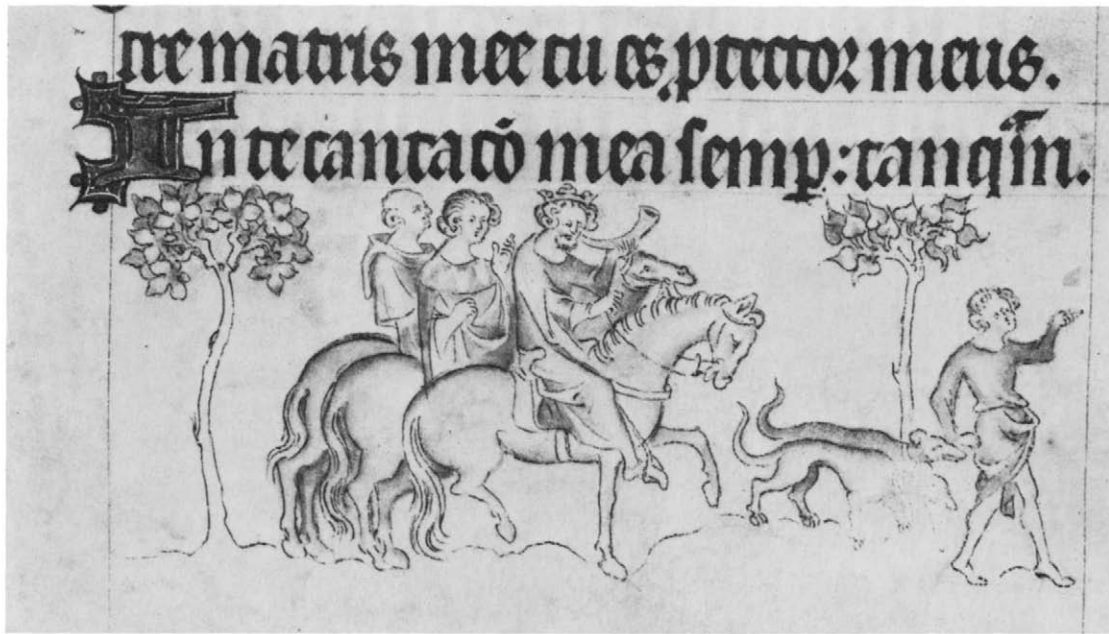 tre matris mee tu es ꝓtector meus.
In te cantatō mea semꝑ: tanqᵃm.